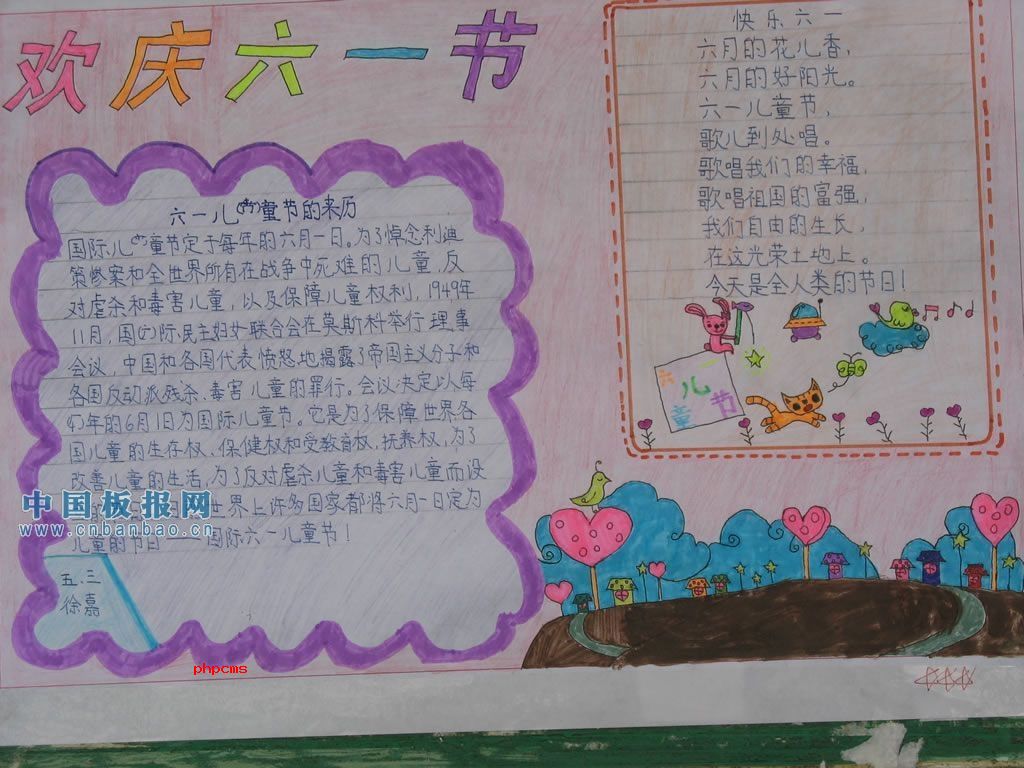 欢庆六一节
六一儿童节的来历
国际儿童节定于每年的六月一日。为了悼念利迪
策惨案和全世界所有在战争中死难的儿童，反
对虐杀和毒害儿童，以及保障儿童权利，1949年
11月，国际民主妇女联合会在莫斯科举行理事
会议，中国和各国代表愤怒地揭露了帝国主义分子和
各国反动派残杀、毒害儿童的罪行。会议决定以每
年的6月1日为国际儿童节。它是为了保障世界各
国儿童的生存权、保健权和受教育权，抚养权，为了
改善儿童的生活，为了反对虐杀儿童和毒害儿童而设
世界上许多国家都将六月一日定为
儿童的节日——国际六一儿童节！
五.三
徐嘉
快乐六一
六月的花儿香，
六月的好阳光。
六一儿童节，
歌儿到处唱。
歌唱我们的幸福，
歌唱祖国的富强，
我们自由的生长，
在这光荣土地上。
今天是全人类的节日！
六一
儿
童节
中国板报网
www.cnbanbao.cn
phpcms